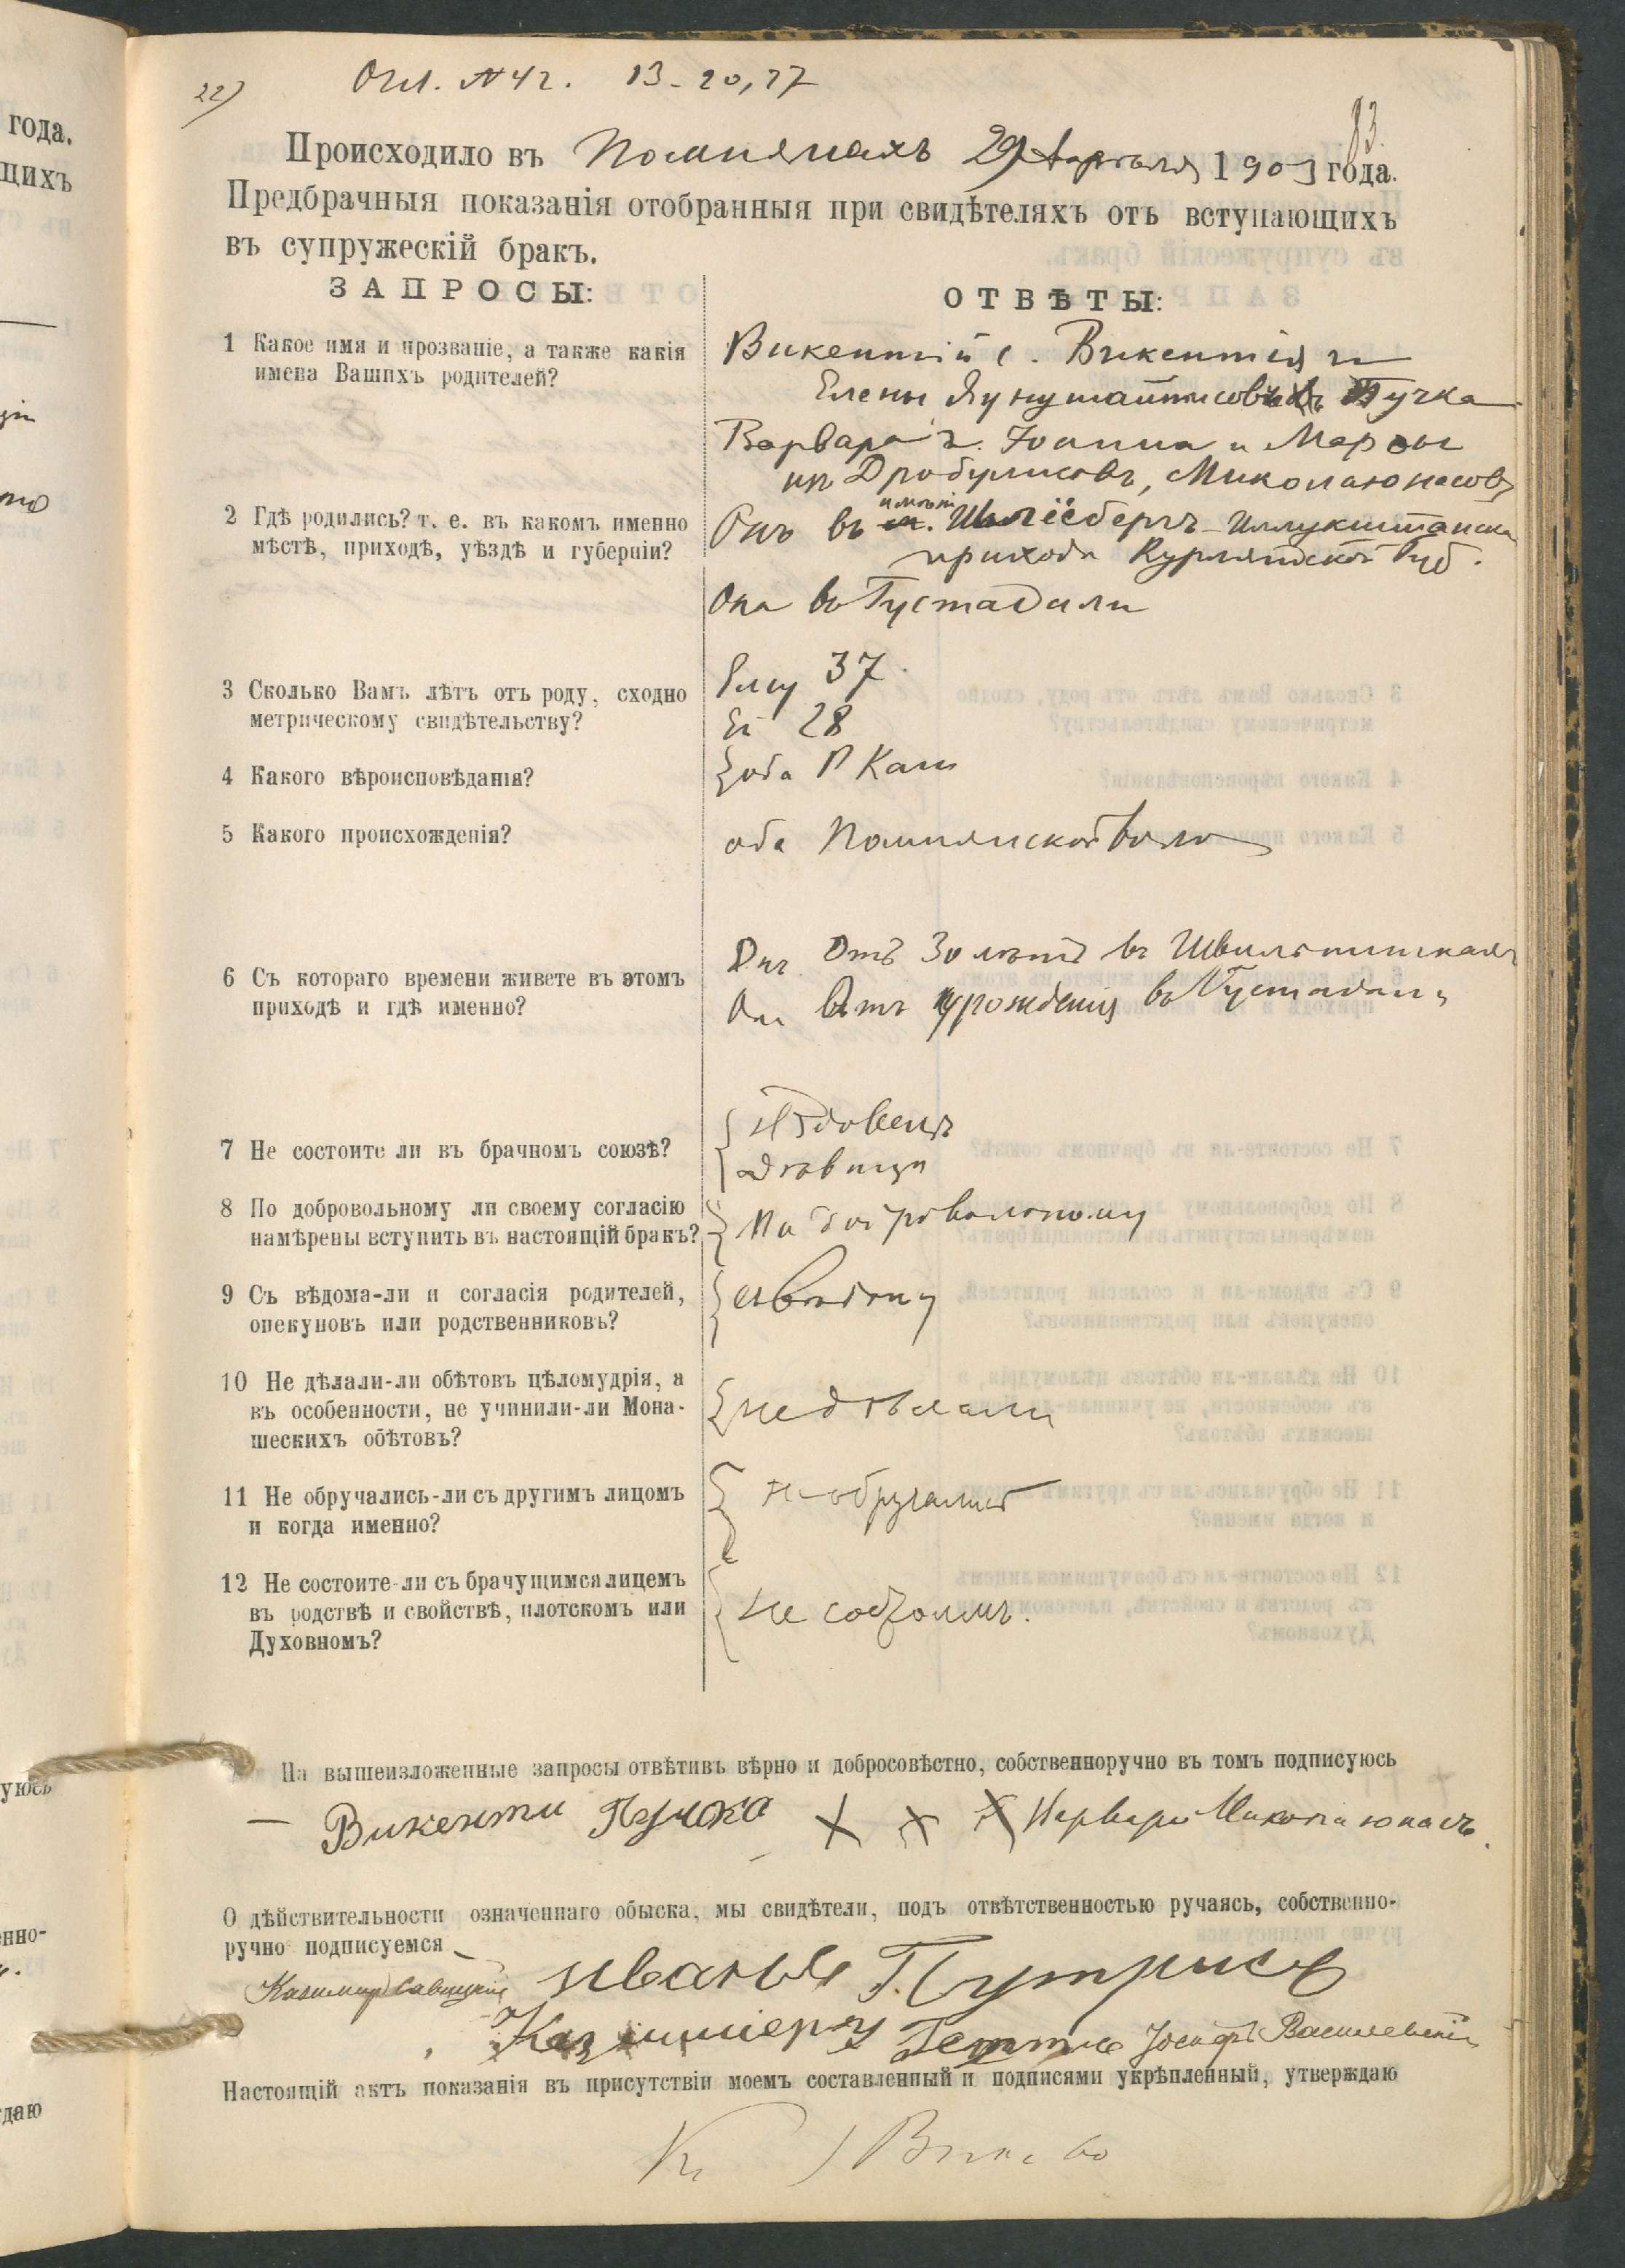 22)
Огл. №42. 13-20, 27
93.
Происходило въ Помпянахъ 29 Апрѣля 1903 года.
Предбрачныя показанія отобранныя при свидѣтеляхъ отъ вступающихъ
въ супружескій бракъ.
ЗАПРОСЫ:
ОТВѢТЫ:
1 Какое имя и прозваніе, а также какія
имена Вашихъ родителей?
Викентій с. Викентія и
Елены Пучка
Варвара д. Іоанна и
из Дробулисовъ, Миколаюнасовъ
2 Гдѣ родились? т. е. въ какомъ именно
мѣстѣ, приходѣ, уѣздѣ и губерніи?
Онъ въ имѣніи
прихода Курляндской Губ.
Она въ Густадали
3 Сколько Вамъ лѣтъ отъ роду, сходно
метрическому свидѣтельству?
Ему 37
Ей 28
4 Какого вѣроисповѣданія?
оба Р Кат
5 Какого происхожденія?
оба Помпянской вол
6 Съ котораго времени живете въ этомъ
приходѣ и гдѣ именно?
Онъ Отъ 30 лѣтъ въ
Она Отъ урожденія въ Густадали
7 Не состоите ли въ брачномъ союзѣ?
Вдовецъ
Дѣвица
8 По добровольному ли своему согласію
намѣрены вступить въ настоящій бракъ?
По добровольному
9 Съ вѣдома-ли и согласія родителей,
опекуновъ или родственниковъ?
10 Не дѣлали-ли обѣтовъ цѣломудрія, а
въ особенности, не учинили-ли Мона-
шескихъ обѣтовъ?
не дѣлали
11 Не обручались-ли съ другимъ лицомъ
и когда именно?
Не обручались
12 Не состоите-ли съ брачущимся лицемъ
въ родствѣ и свойствѣ, плотскомъ или
Духовномъ?
Не состоимъ.
На вышеизложенные запросы отвѣтивъ вѣрно и добросовѣстно, собственноручно въ томъ подписуюсь
— Викенти Пучка X X X Варвара Миколаюнасъ.
О дѣйствительности означеннаго обыска, мы свидѣтели, подъ отвѣтственностью ручаясь, собственно-
ручно подписуемся
Казимир Савицкій Иванъ Путрисъ
Іосифъ Василевскій
Настоящій актъ показанія въ присутствіи моемъ составленный и подписями укрѣпленный, утверждаю